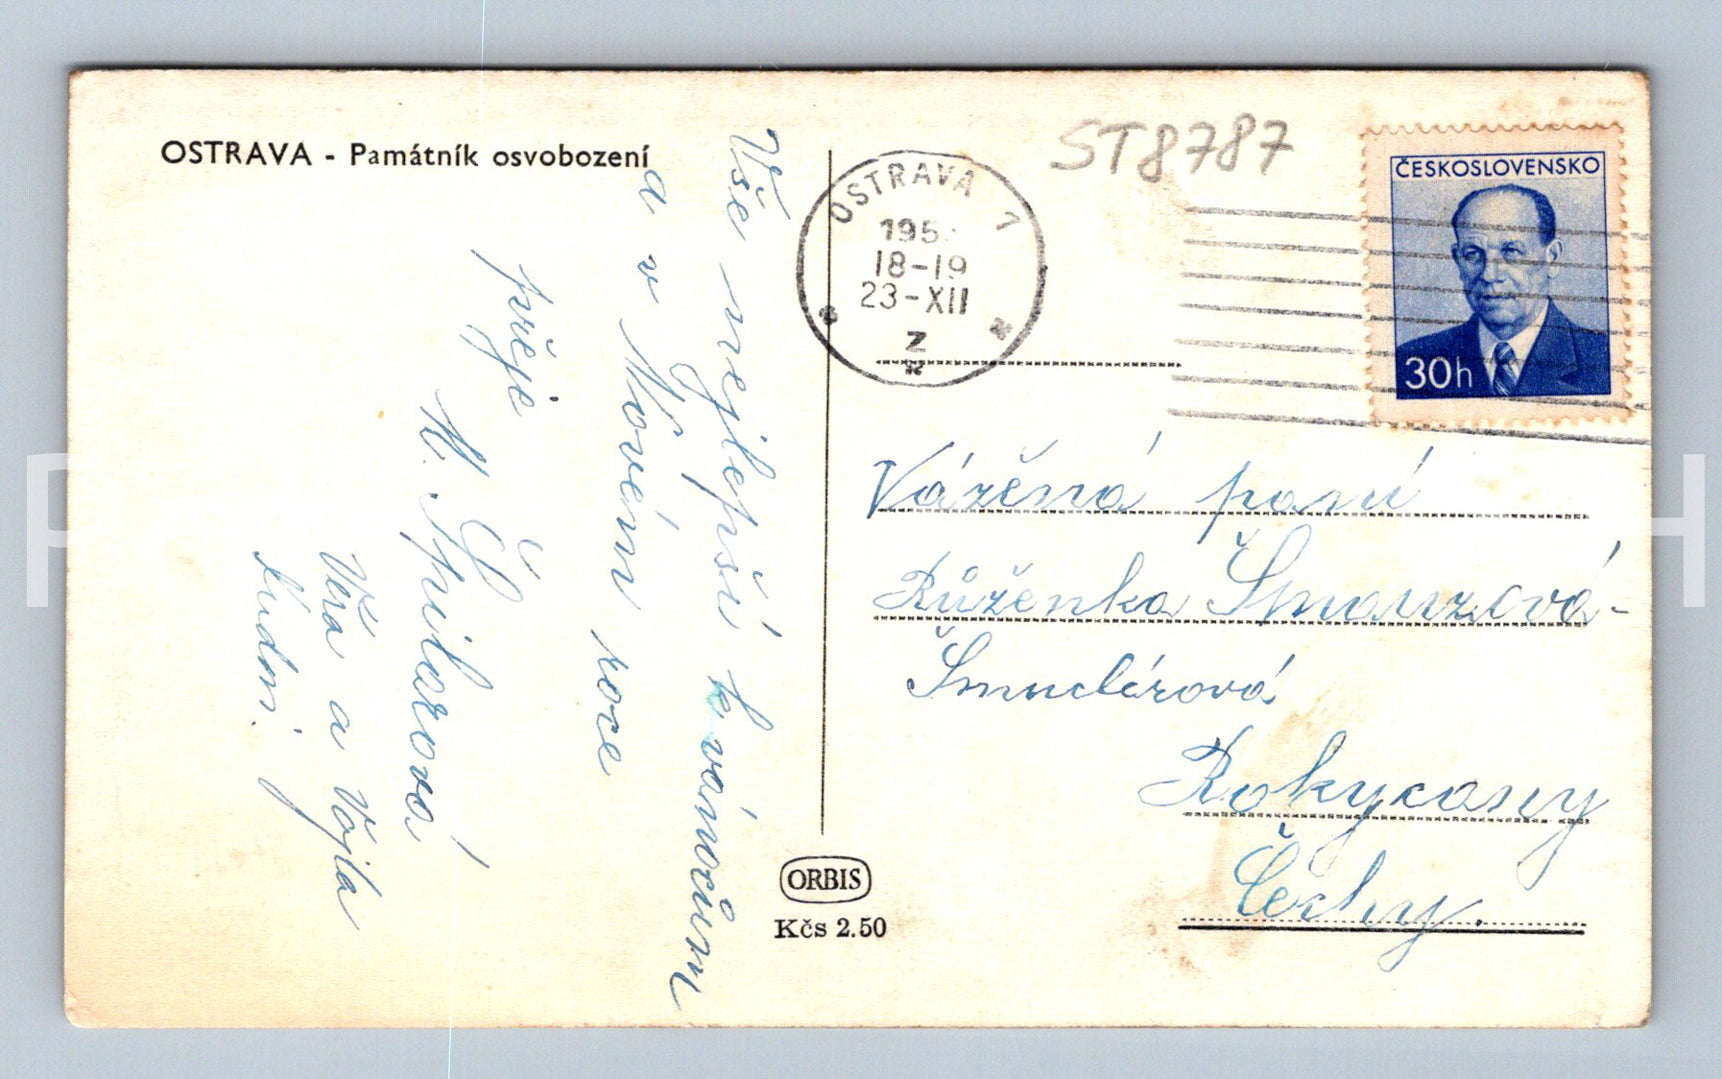 OSTRAVA - Památník osvobození
Vše nejlepší k vánocům
a v Novém roce
přeje
M. Špilarová
Věra a Vojta
Lúdm.
ORBIS
Kčs 2.50
OSTRAVA 1
195
18-19
23-XII
z
ST8787
ČESKOSLOVENSKO
30h
Vážená paní
Růženka Šmauzová-
Šmuclérová
Rokycany
Čechy.